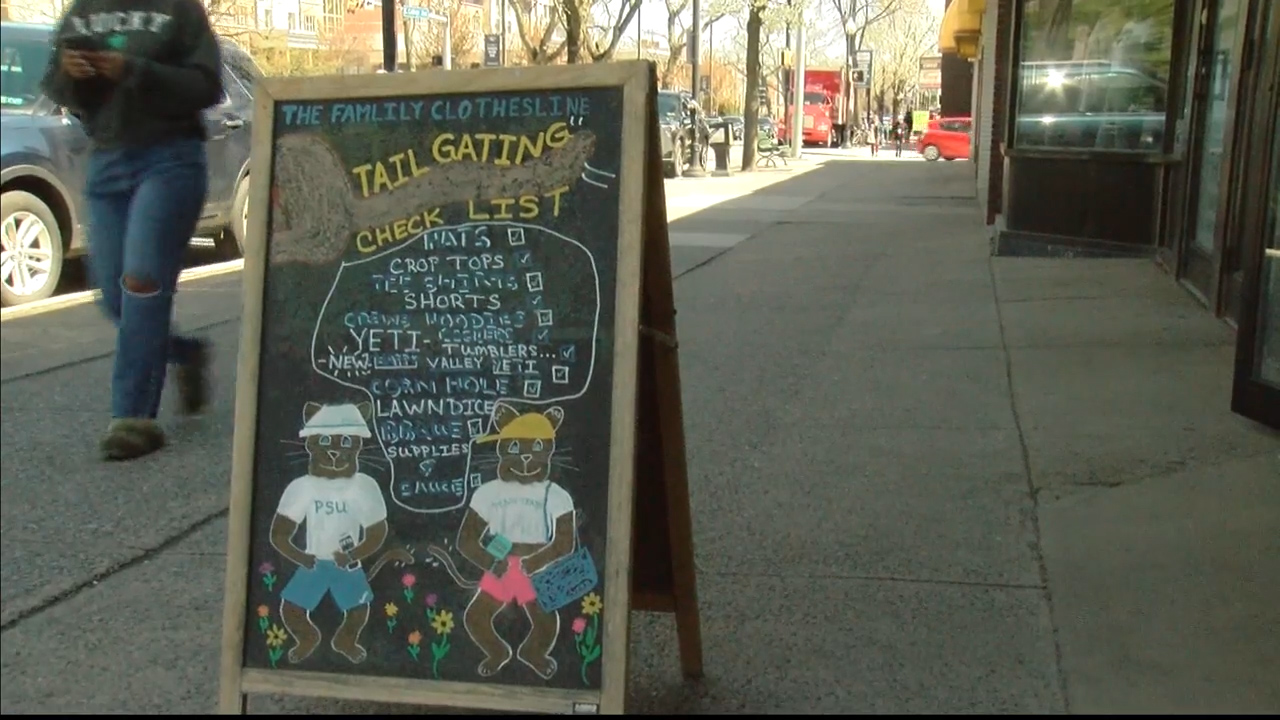 LUCKY
THE FAMLILY CLOTHESLINE
TAIL GATING
CHECK LIST
HATS
CROP TOPS
TEE SHIRTS
SHORTS
CREWS HOODIES
YETI-
TUMBLERS...
-NEW- VALLEY YETI
CORN HOLE
LAWN DICE
SUPPLIES
&
SAUCE
PSU